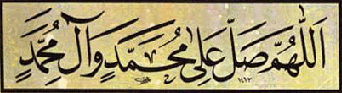 اَللّٰهُمَّ صَلِّ عَلٰى مُحَمَّدٍ وَآلِ مُحَمَّدٍ